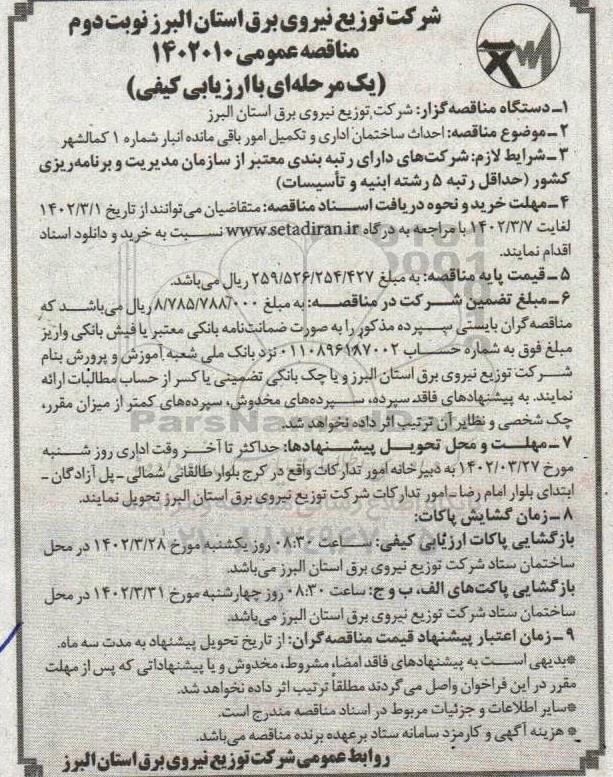 شرکت توزیع نیروی برق استان البرز نوبت دوم
مناقصه عمومی ۱۴۰۲۰۱۰
(یک مرحله‌ای با ارزیابی کیفی)
۱ـ دستگاه مناقصه‌گزار: شرکت توزیع نیروی برق استان البرز
۲ـ موضوع مناقصه: احداث ساختمان اداری و تکمیل امور باقی مانده انبار شماره ۱ کمالشهر
۳ـ شرایط لازم: شرکت‌های دارای رتبه بندی معتبر از سازمان مدیریت و برنامه‌ریزی
کشور (حداقل رتبه ۵ رشته ابنیه و تأسیسات)
۴ـ مهلت خرید و نحوه دریافت اسناد مناقصه: متقاضیان می‌توانند از تاریخ ۱۴۰۲/۳/۱
لغایت ۱۴۰۲/۳/۷ با مراجعه به درگاه www.setadiran.ir نسبت به خرید و دانلود اسناد
اقدام نمایند.
۵ـ قیمت پایه مناقصه: به مبلغ ۲۵۹/۵۲۶/۲۵۴/۴۲۷ ریال می‌باشد.
۶ـ مبلغ تضمین شرکت در مناقصه: به مبلغ ۸/۷۸۵/۷۸۸/۰۰۰ ریال می‌باشد که
مناقصه‌گران بایستی سپرده مذکور را به صورت ضمانت‌نامه بانکی معتبر یا فیش بانکی واریز
مبلغ فوق به شماره حساب ۰۱۱۰۸۹۶۱۸۷۰۰۲ نزد بانک ملی شعبه آموزش و پرورش بنام
شرکت توزیع نیروی برق استان البرز و یا چک بانکی تضمینی یا کسر از حساب مطالبات ارائه
نمایند. به پیشنهادهای فاقد سپرده، سپرده‌های مخدوش، سپرده‌های کمتر از میزان مقرر،
چک شخصی و نظایر آن ترتیب اثر داده نخواهد شد.
۷ـ مهلت و محل تحویل پیشنهادها: حداکثر تا آخر وقت اداری روز شنبه
مورخ ۱۴۰۲/۰۳/۲۷ به دبیرخانه امور تدارکات واقع در کرج بلوار طالقانی شمالی ـ پل آزادگان ـ
ابتدای بلوار امام رضا ـ امور تدارکات شرکت توزیع نیروی برق استان البرز تحویل نمایند.
۸ـ زمان گشایش پاکات:
بازگشایی پاکات ارزیابی کیفی: ساعت ۰۸:۳۰ روز یکشنبه مورخ ۱۴۰۲/۳/۲۸ در محل
ساختمان ستاد شرکت توزیع نیروی برق استان البرز می‌باشد.
بازگشایی پاکت‌های الف، ب و ج: ساعت ۰۸:۳۰ روز چهارشنبه مورخ ۱۴۰۲/۳/۳۱ در محل
ساختمان ستاد شرکت توزیع نیروی برق استان البرز می‌باشد.
۹ـ زمان اعتبار پیشنهاد قیمت مناقصه‌گران: از تاریخ تحویل پیشنهاد به مدت سه ماه.
*بدیهی است به پیشنهادهای فاقد امضا، مشروط، مخدوش و یا پیشنهاداتی که پس از مهلت
مقرر در این فراخوان واصل می‌گردند مطلقاً ترتیب اثر داده نخواهد شد.
*سایر اطلاعات و جزئیات مربوط در اسناد مناقصه مندرج است.
* هزینه آگهی و کارمزد سامانه ستاد برعهده برنده مناقصه می‌باشد.
روابط عمومی شرکت توزیع نیروی برق استان البرز